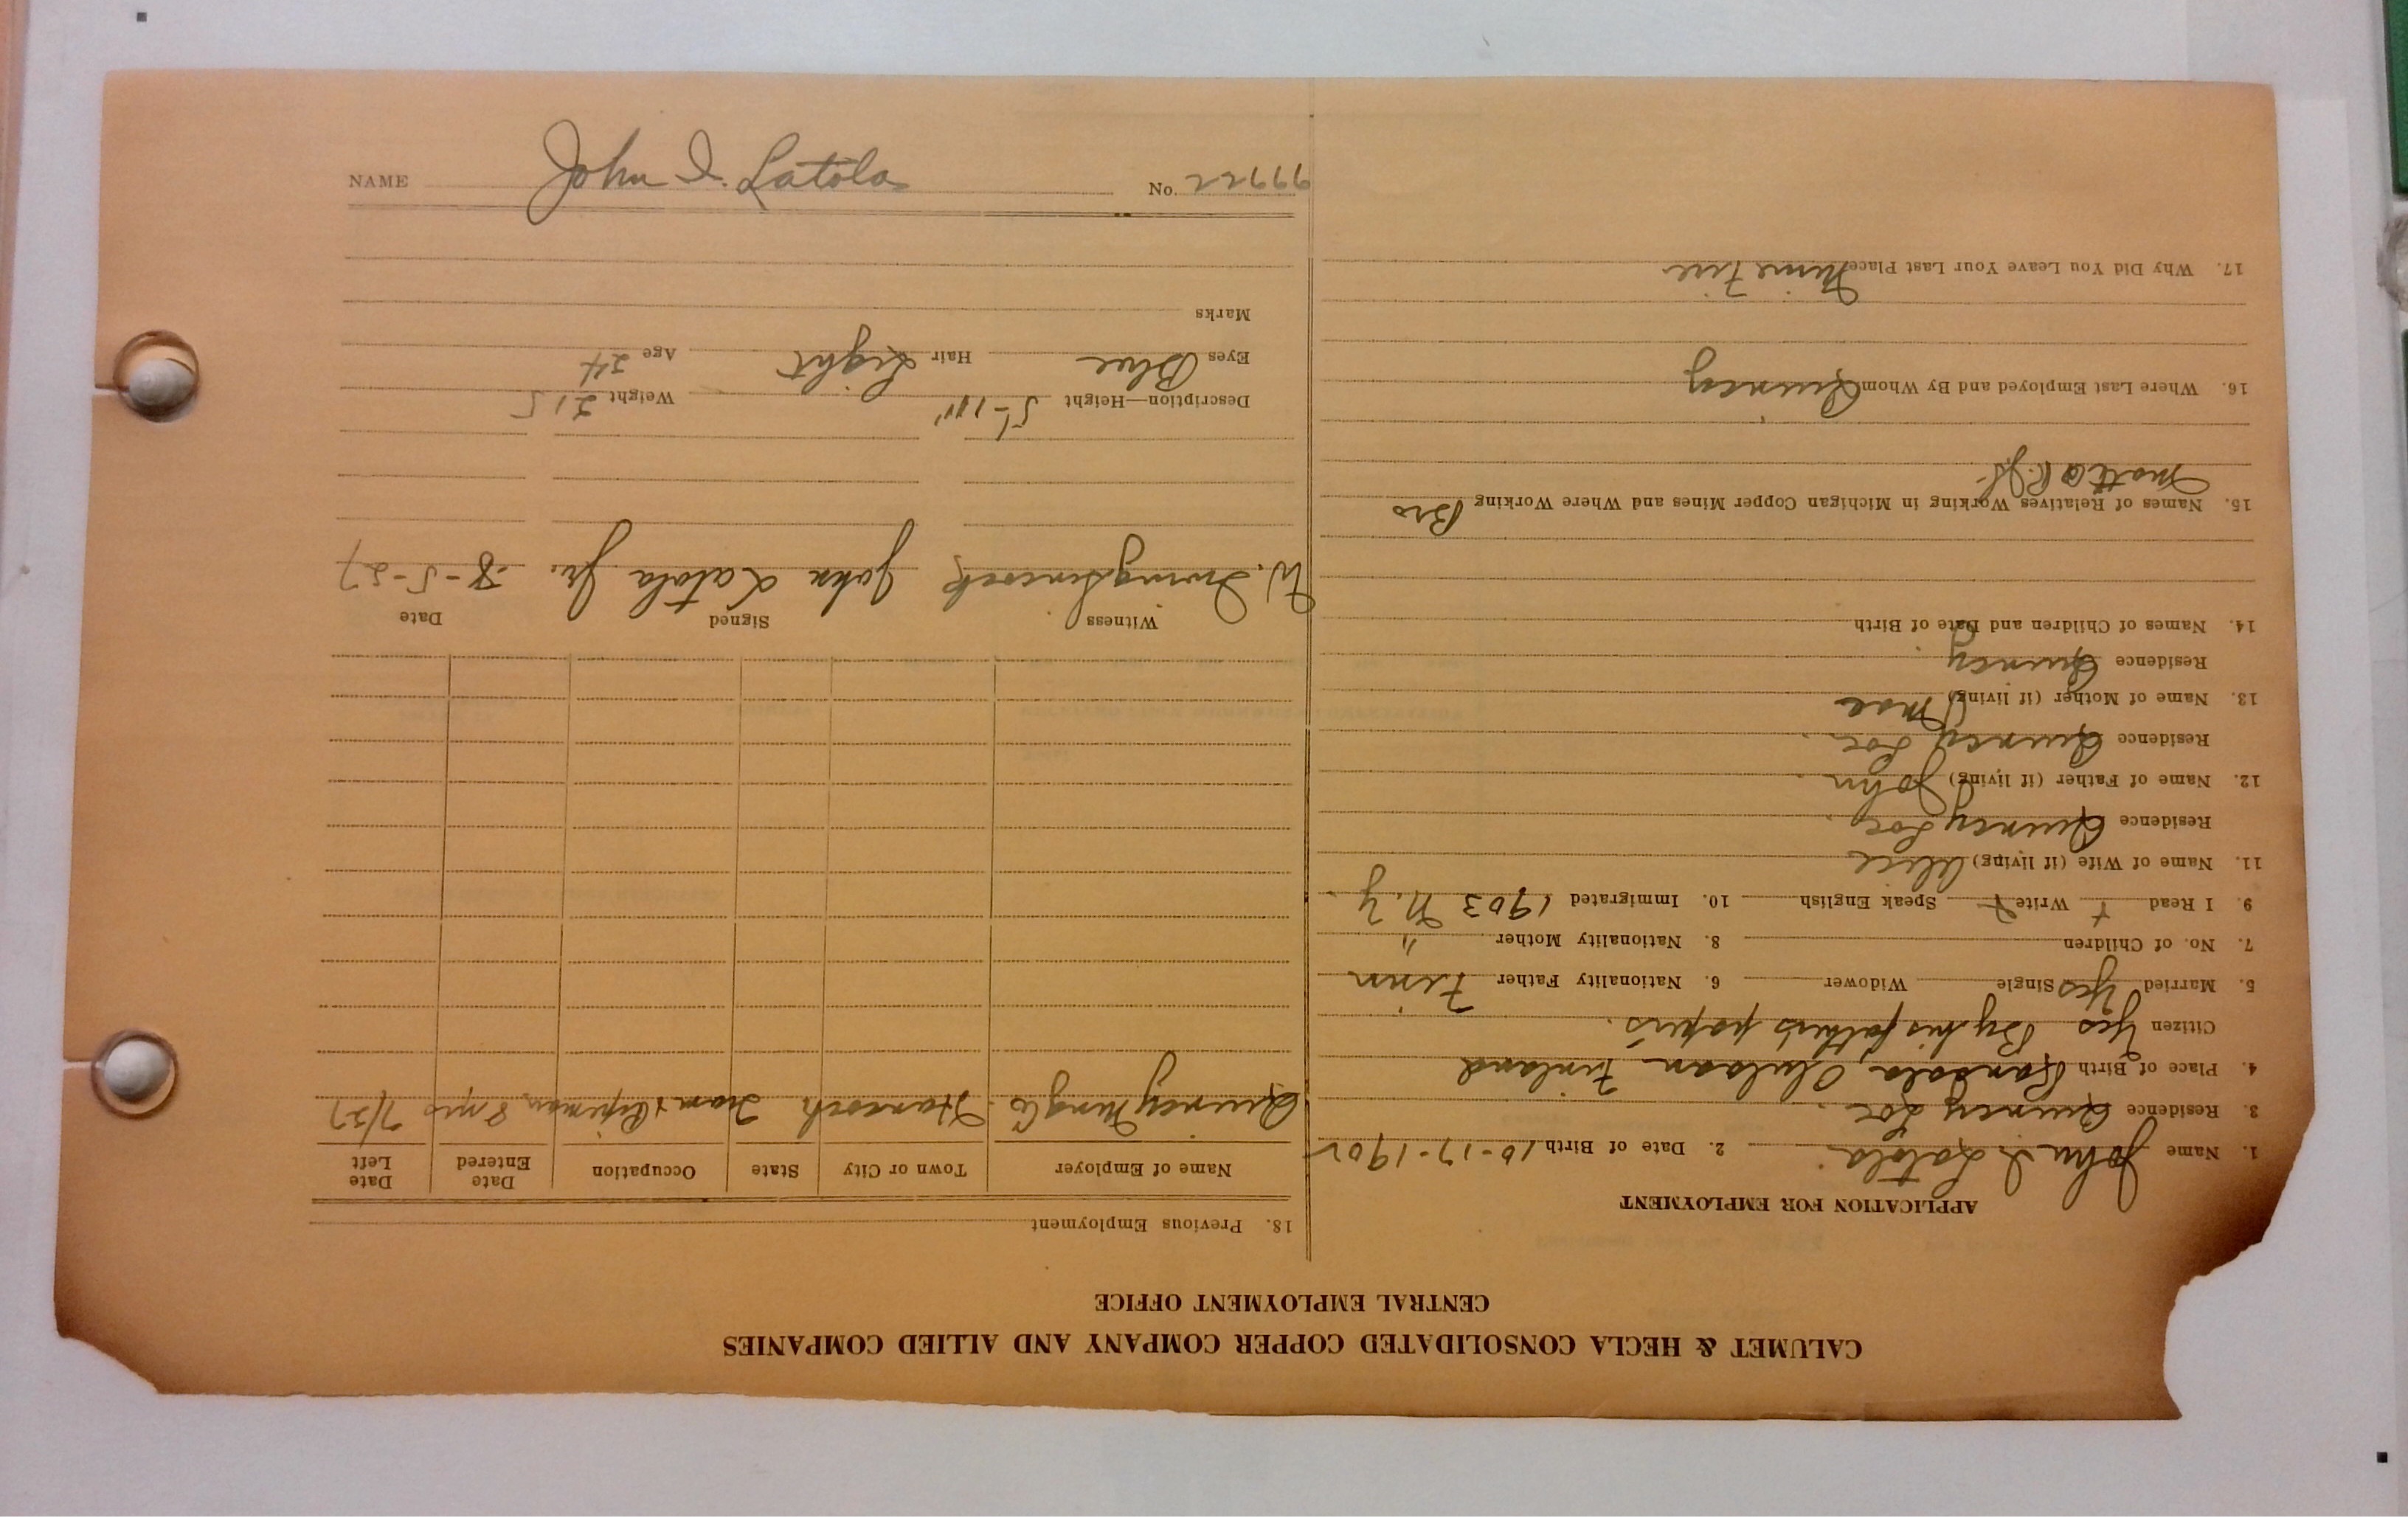 CALUMET & HECLA CONSOLIDATED COPPER COMPANY AND ALLIED COMPANIES
CENTRAL EMPLOYMENT OFFICE
APPLICATION FOR EMPLOYMENT
1. Name John I. Latola 2. Date of Birth 10-17-1902
3. Residence Quincy Loc.
4. Place of Birth Oulaan Finland
Citizen Yes By his father's papers.
5. Married Yes Single Widower 6. Nationality Father Finn
7. No. of Children 8. Nationality Mother "
9. I Read + Write + Speak English 10. Immigrated 1903 N.Y.
11. Name of Wife (if living) Alice
Residence Quincy Loc.
12. Name of Father (if living) John
Residence Quincy Loc.
13. Name of Mother (if living)
Residence Quincy
14. Names of Children and Date of Birth
15. Names of Relatives Working in Michigan Copper Mines and Where Working Bro
Matt
16. Where Last Employed and By Whom Quincy
17. Why Did You Leave Your Last Place Mine Fire
18. Previous Employment
Name of Employer Town or City State Occupation Date Entered Date Left
Quincy Mng Co. Hancock Tram & Pipeman 8 yrs 7/27
Witness Signed Date
W. John Latola Jr. 8-5-27
Description—Height 5'-11" Weight 215
Eyes Blue Hair Light Age 24
Marks
NAME John I. Latola No.